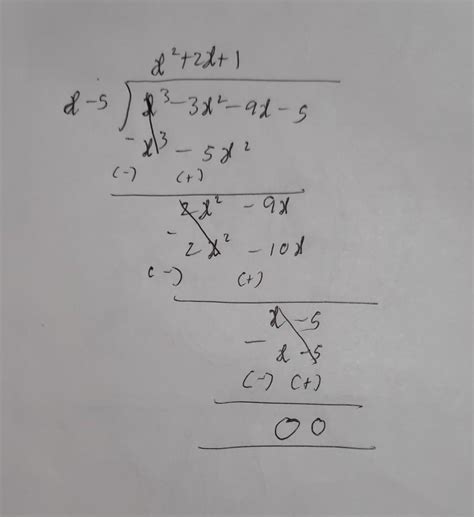 x²+2x+1
x-5) x³-3x²-9x-5
- x³ - 5x²
(-) (+)
2x² - 9x
- 2x² - 10x
(-) (+)
x - 5
- x - 5
(-) (+)
0 0